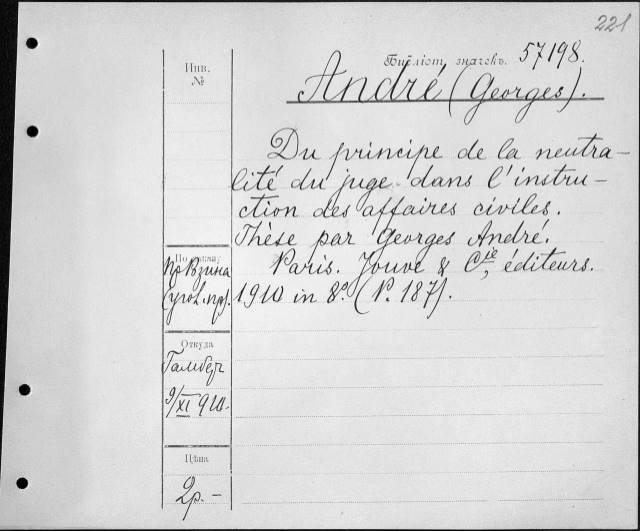 221
Библіот. значекъ. 57198.
Инв.
№
André (Georges).
Du principe de la neutra-
lité du juge dans l'instru-
ction des affaires civiles.
Thèse par Georges André.
Paris. Jouve & Cie, éditeurs.
1910 in 8º. (P. 187).
Откуда
9/XI 910.
Цѣна
2р.–